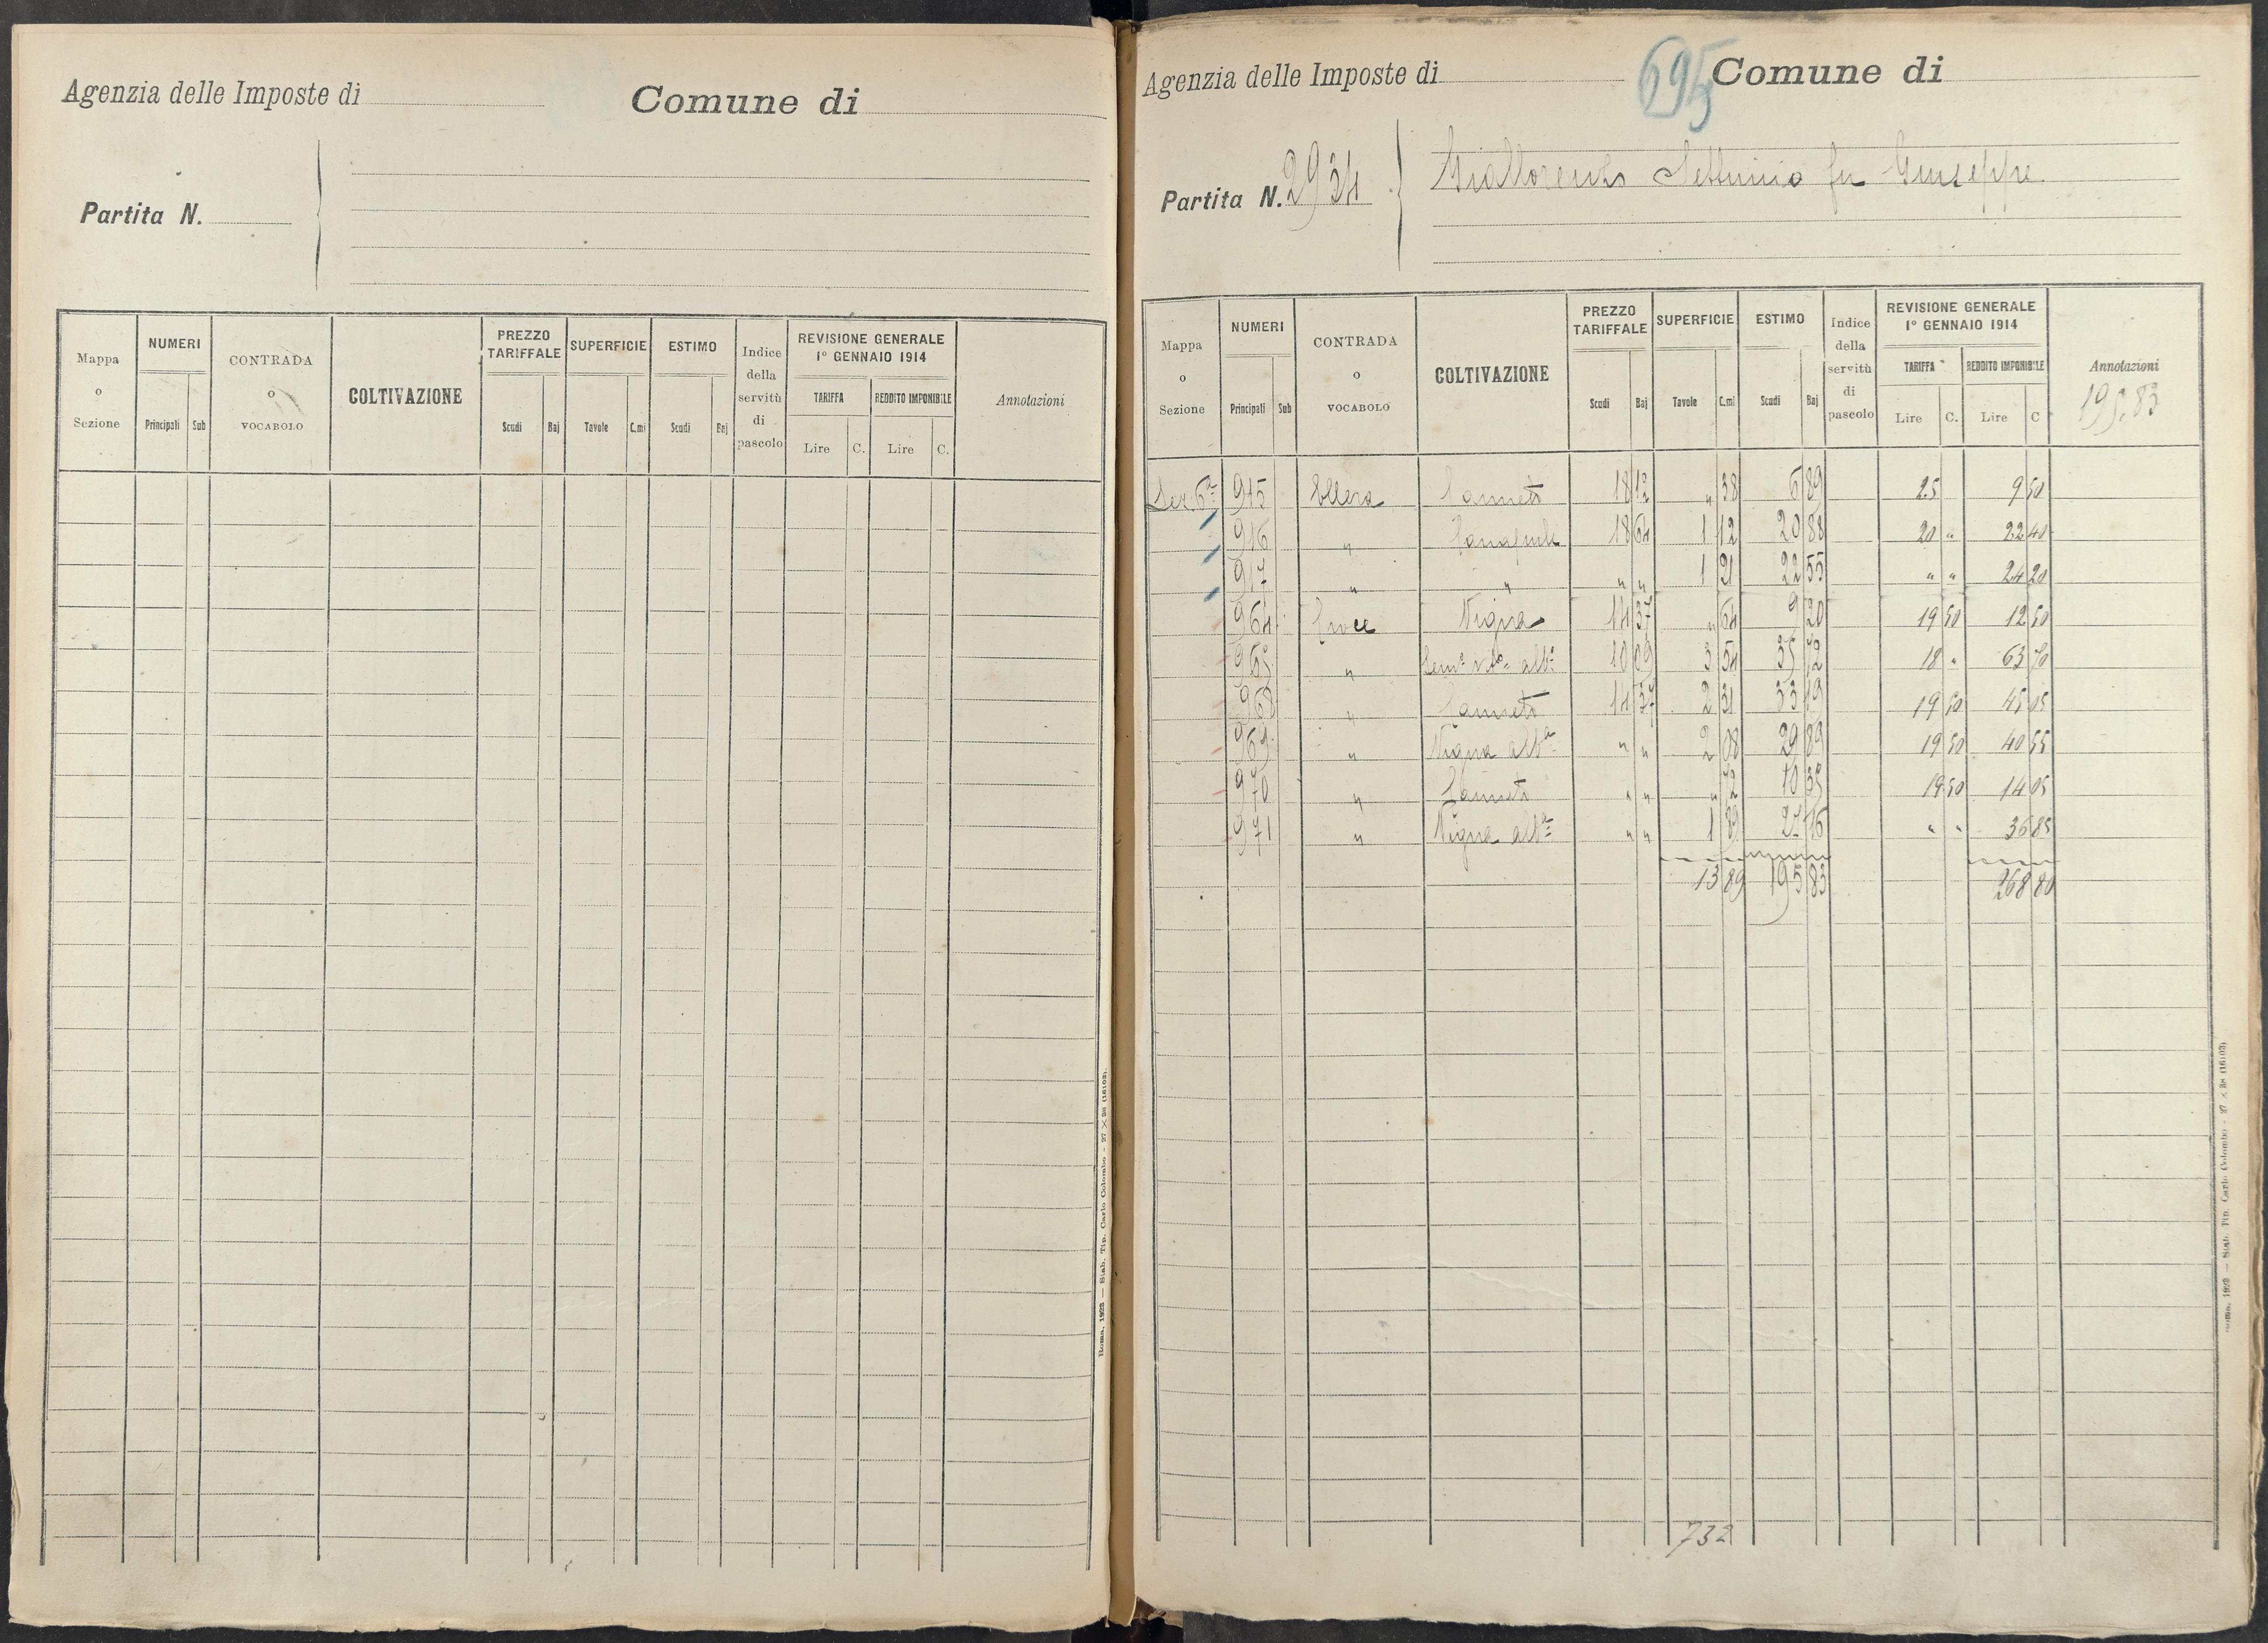 Agenzia delle Imposte di
Comune di
Partita N.
Mappa o Sezione
NUMERI
Principali Sub
CONTRADA o VOCABOLO
COLTIVAZIONE
PREZZO TARIFFALE
Scudi Baj
SUPERFICIE
Tavole C.mi
ESTIMO
Scudi Baj
Indice della servitù di pascolo
REVISIONE GENERALE
1° GENNAIO 1914
TARIFFA REDDITO IMPONIBILE
Lire C. Lire C.
Annotazioni
Roma, 1923 — Stab. Tip. Carlo Colombo - 27 × 38 (16103).
Agenzia delle Imposte di
695
Comune di
Partita N. 2934
Giallorenzo Settimio fu Giuseppe
Mappa o Sezione
NUMERI
Principali Sub
CONTRADA o VOCABOLO
COLTIVAZIONE
PREZZO TARIFFALE
Scudi Baj
SUPERFICIE
Tavole C.mi
ESTIMO
Scudi Baj
Indice della servitù di pascolo
REVISIONE GENERALE
1° GENNAIO 1914
TARIFFA REDDITO IMPONIBILE
Lire C. Lire C
Annotazioni
195,83
Sez. 6ª 915 Ellera Canneto 18 12 " 38 6 89 25 9 50
916 " 18 64 1 12 20 88 20 " 22 40
917 " " " " 1 21 22 55 " " 24 20
964 Croce Vigna 14 37 " 64 9 20 19 50 12 50
965 " 10 09 3 54 35 72 18 " 63 70
968 " Canneto 14 37 2 31 33 19 19 50 45 05
969 " Vigna albª " " 2 08 29 89 19 50 40 55
970 " Canneto " " " 72 10 35 19 50 14 05
971 " Vigna albª " " 1 89 27 16 " " 36 85
13 89 195 83 268 80
732
Roma, 1923 — Stab. Tip. Carlo Colombo - 27 × 38 (16103)